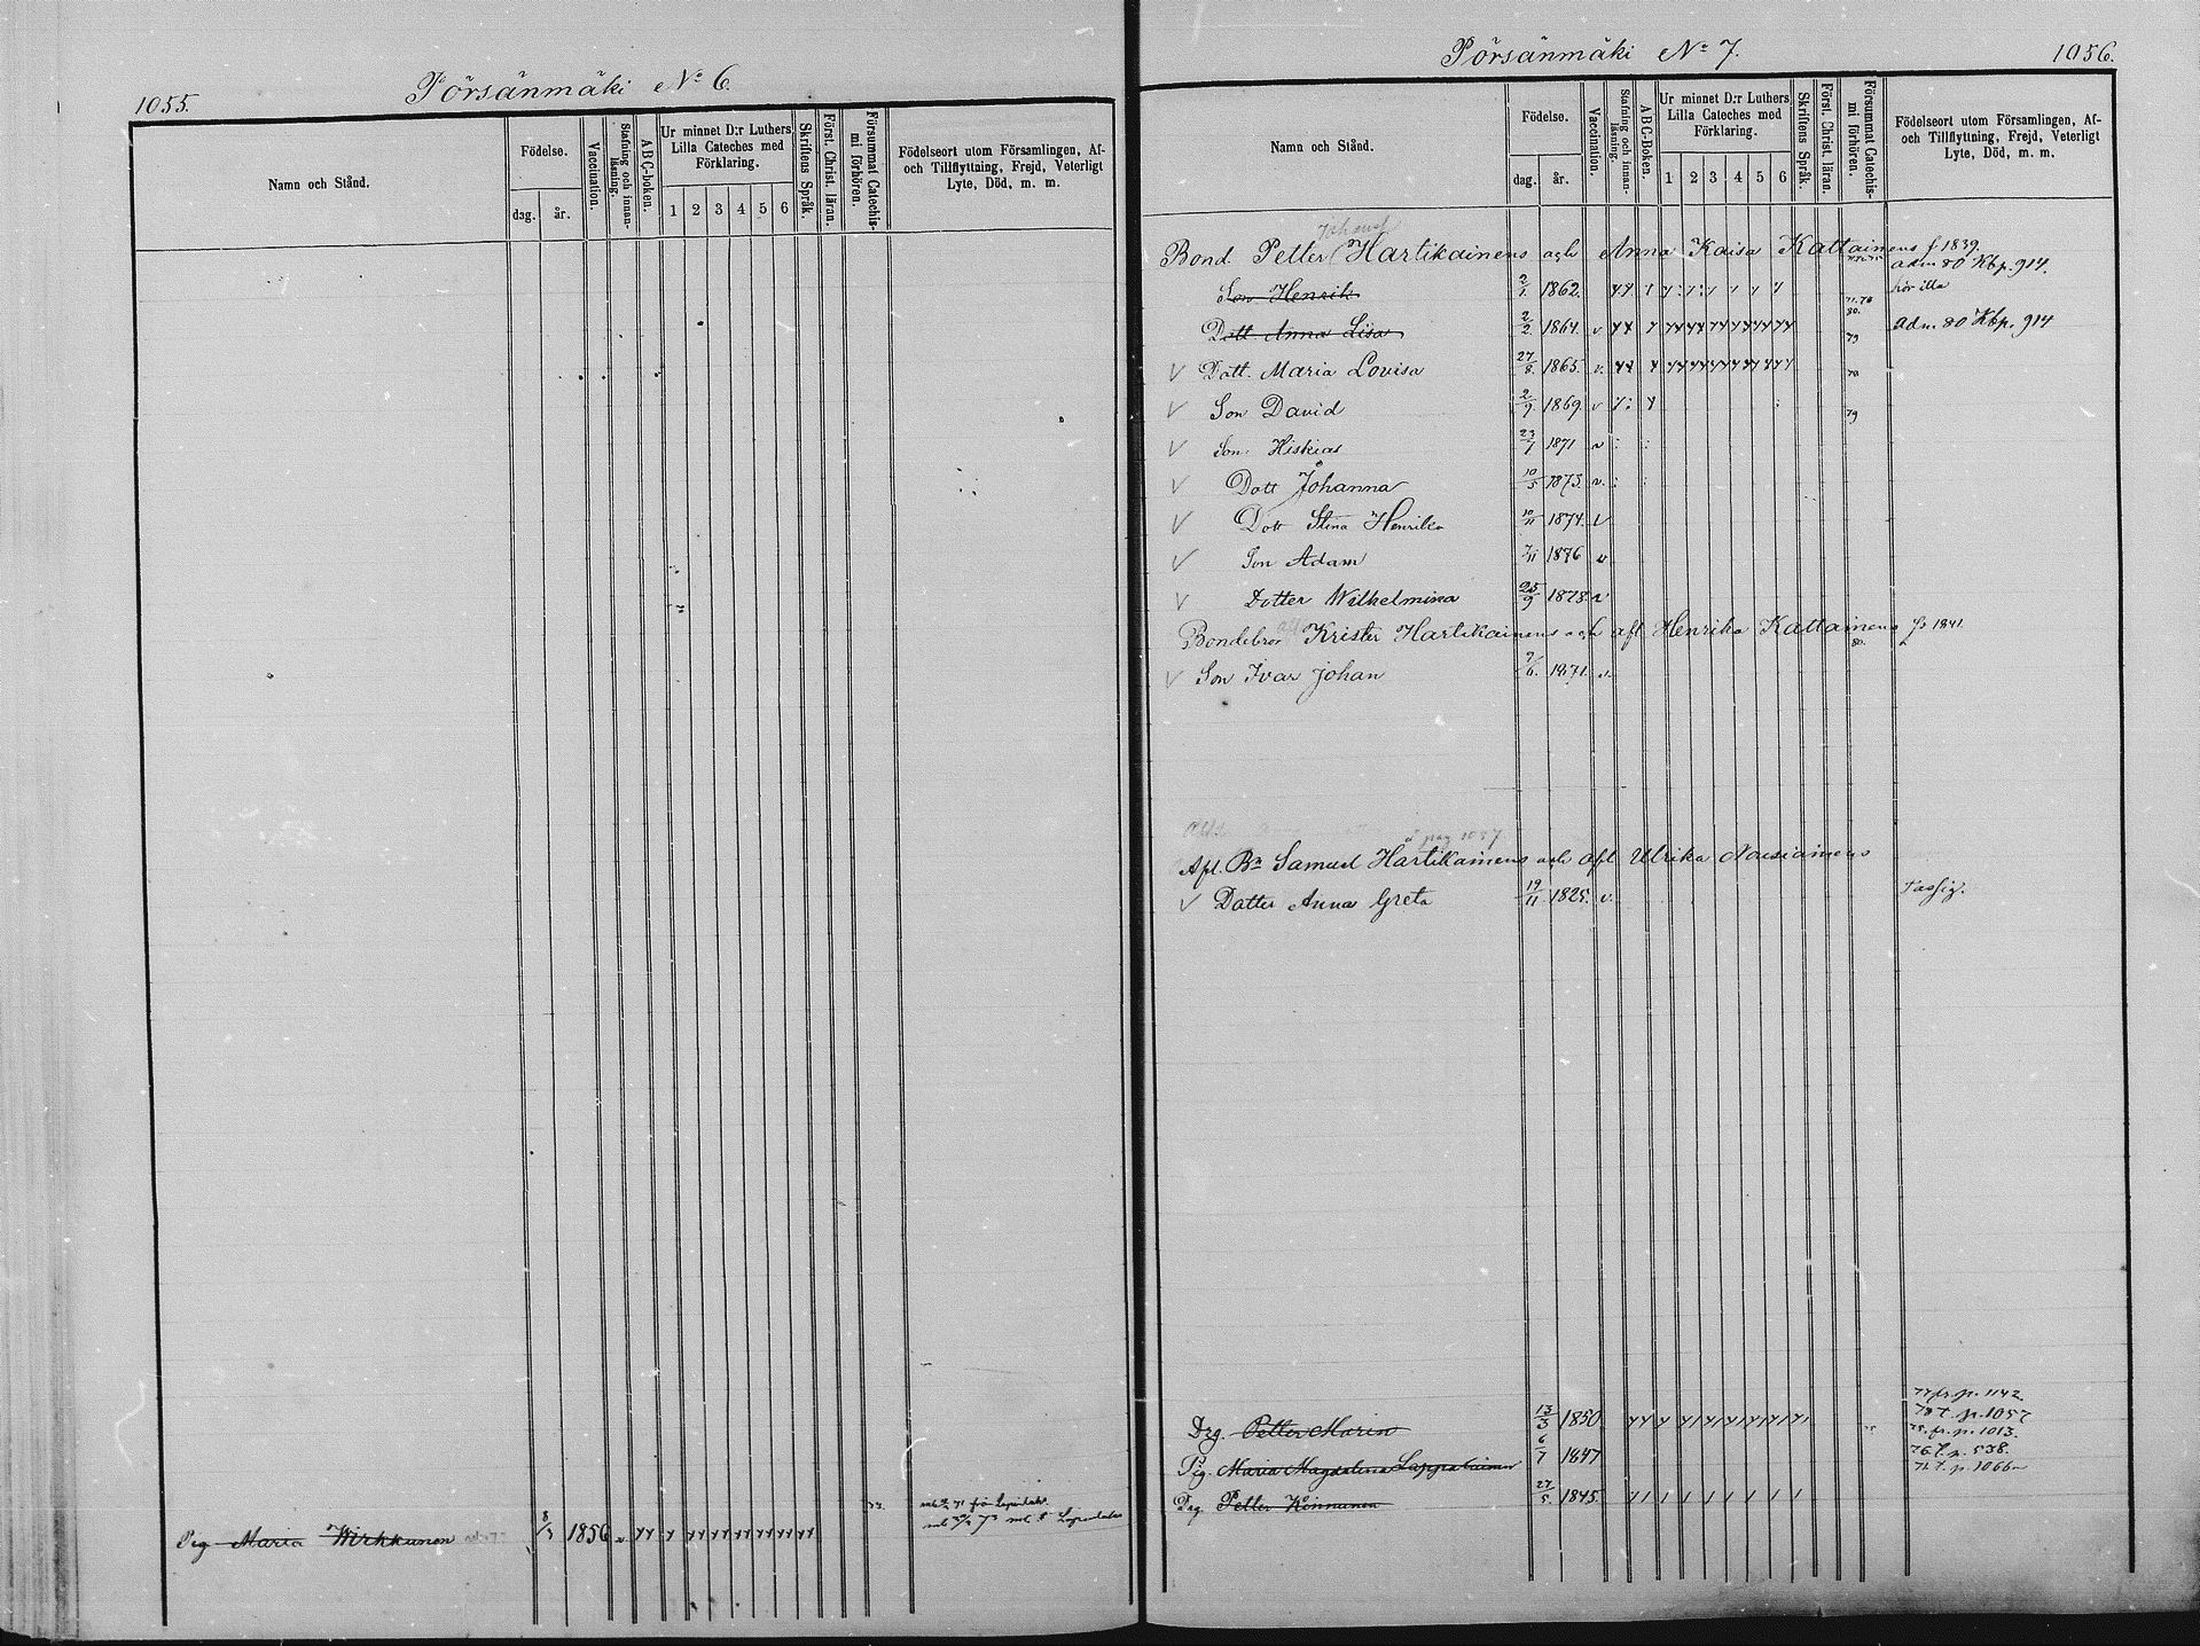 1055.
Pörsänmäki No 6.
Namn och Stånd.
Födelse.
dag.
år.
Vaccination.
Stafning och innan-
läsning.
ABC-boken.
Ur minnet D:r Luthers
Lilla Cateches med
Förklaring.
1 2 3 4 5 6
Skriftens Språk.
Först. Christ. läran.
Försummat Catechis-
mi förhören.
Födelseort utom Församlingen, Af-
och Tillflyttning, Frejd, Veterligt
Lyte, Död, m. m.
Pig Maria Wirkkunen 8/3 1856 v
Pörsänmäki No 7.
1056.
Namn och Stånd.
Födelse.
dag.
år.
Vaccination.
Stafning och innan-
läsning.
ABC-Boken.
Ur minnet D:r Luthers
Lilla Cateches med
Förklaring.
1 2 3 4 5 6
Skriftens Språk.
Först. Christ. läran.
Försummat Catechis-
mi förhören.
Födelseort utom Församlingen, Af-
och Tillflyttning, Frejd, Veterligt
Lyte, Död, m. m.
Bond. Petter Hartikainens och Anna Kaisa Kattainens f 1839.
adm 80 Kbp. 914.
Son Henrik 2/1 1862. hör illa
Dott Anna Lisa 2/2 1864. v 79 adm. 80 Kbp. 914
Dott. Maria Lovisa 27/8 1865. v.
Son David 2/9 1869. v 79
Son Hiskias 23/1 1871 v
Dott Johanna 10/5 1873. v.
Dott Stina Henrika 10/11 1874. v
Son Adam 1876 v
Dotter Wilhelmina 25/9 1878. v
Bondebror Krister Hartikainens och afl Henrika Kattainens f. 1841.
80.
Son Ivar Johan 9/6. 1871. v.
pag 1057
Afl. Bn Samuel Hartikainens och afl Ulrika Nousiainens
Dotter Anna Greta 19/11 1825. v.
Drg. Petter Marin 13/3 1850. 77 fr. p. 1142
78 t. p. 1057
Pig. Maria Magdalena Lappalainen 6/7 1847 75. fr. p. 1013.
76 t. p. 538.
Drg Petter Kinnunen 27/5. 1845. 71. t. p. 1066